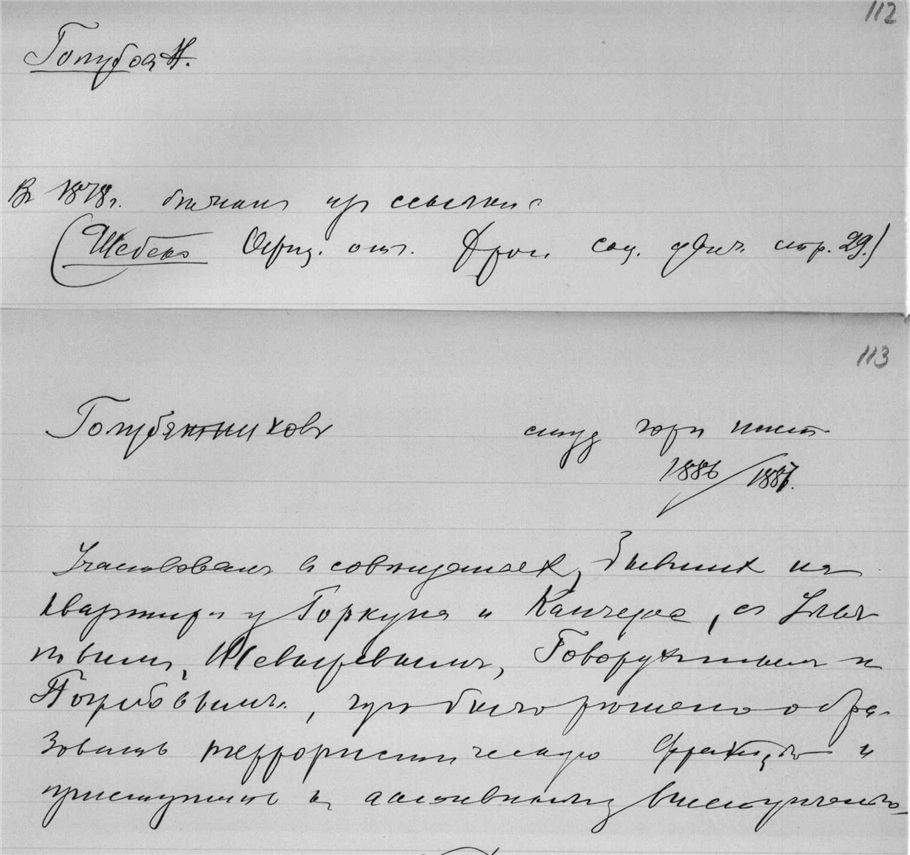 112
Голубоa Н.
Въ 1878г. бѣжалъ изъ ссылки
(Шебеко Офиц. отч. соц. движ. стр. 29.)
113
Голубятниковъ студ горн инст
1886/1887.
Участвовалъ в совѣщаніяхъ, бывших на
квартирѣ у Горкуна и Канчера, съ Улья-
новымъ, Шевыревымъ, Говорухинымъ и
гдѣ было рѣшено обра-
зовать террористическую фракцію и
приступить къ активному выступленію